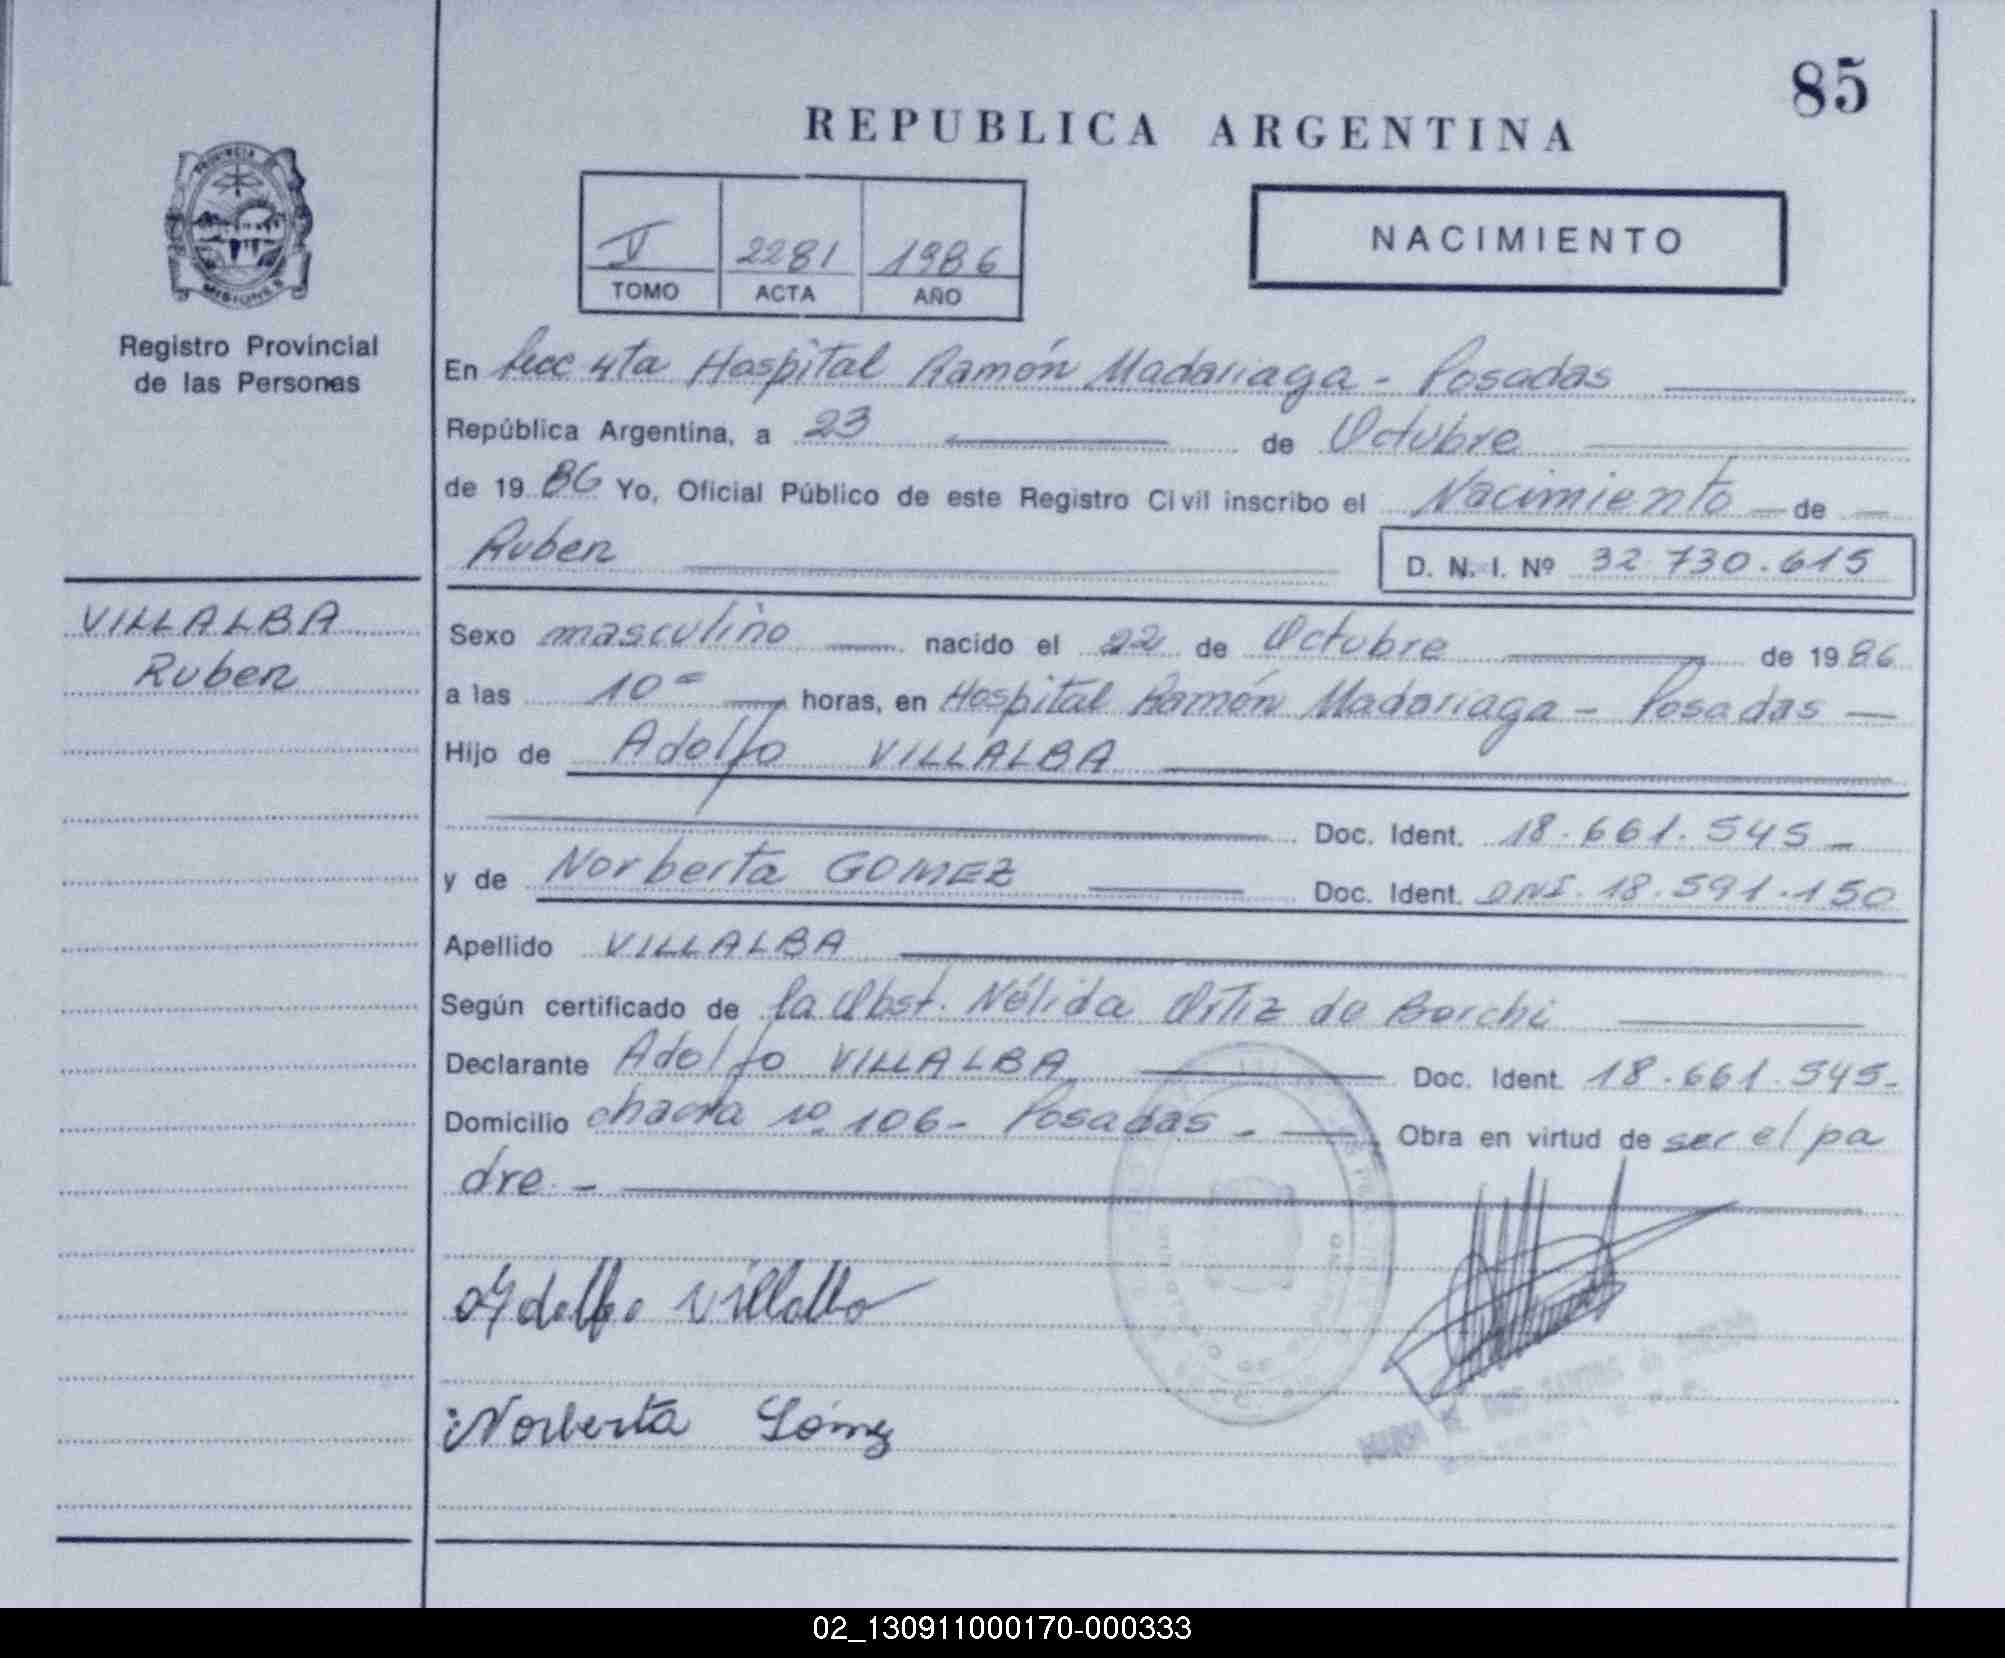 85
REPUBLICA ARGENTINA
PROVINCIA
MISIONES
V 2281 1986
TOMO ACTA AÑO
NACIMIENTO
Registro Provincial
de las Personas
En Secc 4ta Hospital Ramón Madariaga - Posadas
República Argentina, a 23 de Octubre
de 19 86 Yo, Oficial Público de este Registro Civil inscribo el Nacimiento de
Ruben D. N. I. Nº 32.730.615
VILLALBA
Ruben
Sexo masculino nacido el 22 de Octubre de 19 86
a las 10 horas, en Hospital Ramón Madariaga - Posadas
Hijo de Adolfo VILLALBA
Doc. Ident. 18.661.545
y de Norberta GOMEZ Doc. Ident. DNI. 18.591.150
Apellido VILLALBA
Según certificado de la Obst. Nélida Ortiz de Borchi
Declarante Adolfo VILLALBA Doc. Ident. 18.661.545
Domicilio chacra nº 106 - Posadas - Obra en virtud de ser el pa
dre -
Adolfo Villalba
Norberta Gómez
02_130911000170-000333